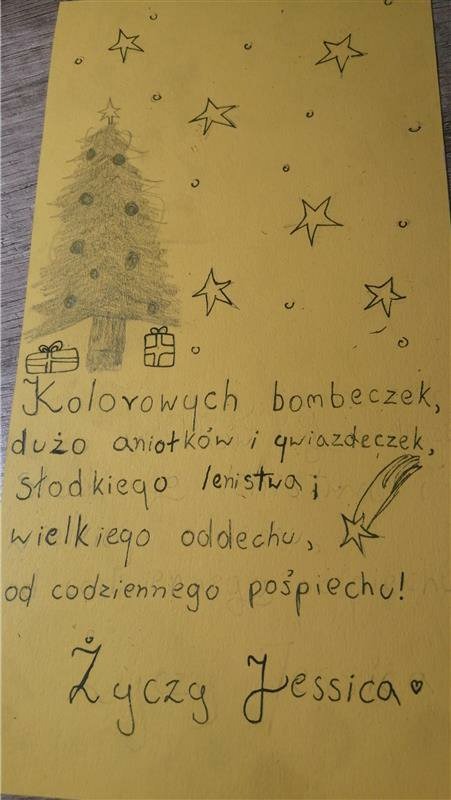 Kolorowych bombeczek,
dużo aniołków i gwiazdeczek,
słodkiego lenistwa i
wielkiego oddechu,
od codziennego pośpiechu!
Życzy Jessica